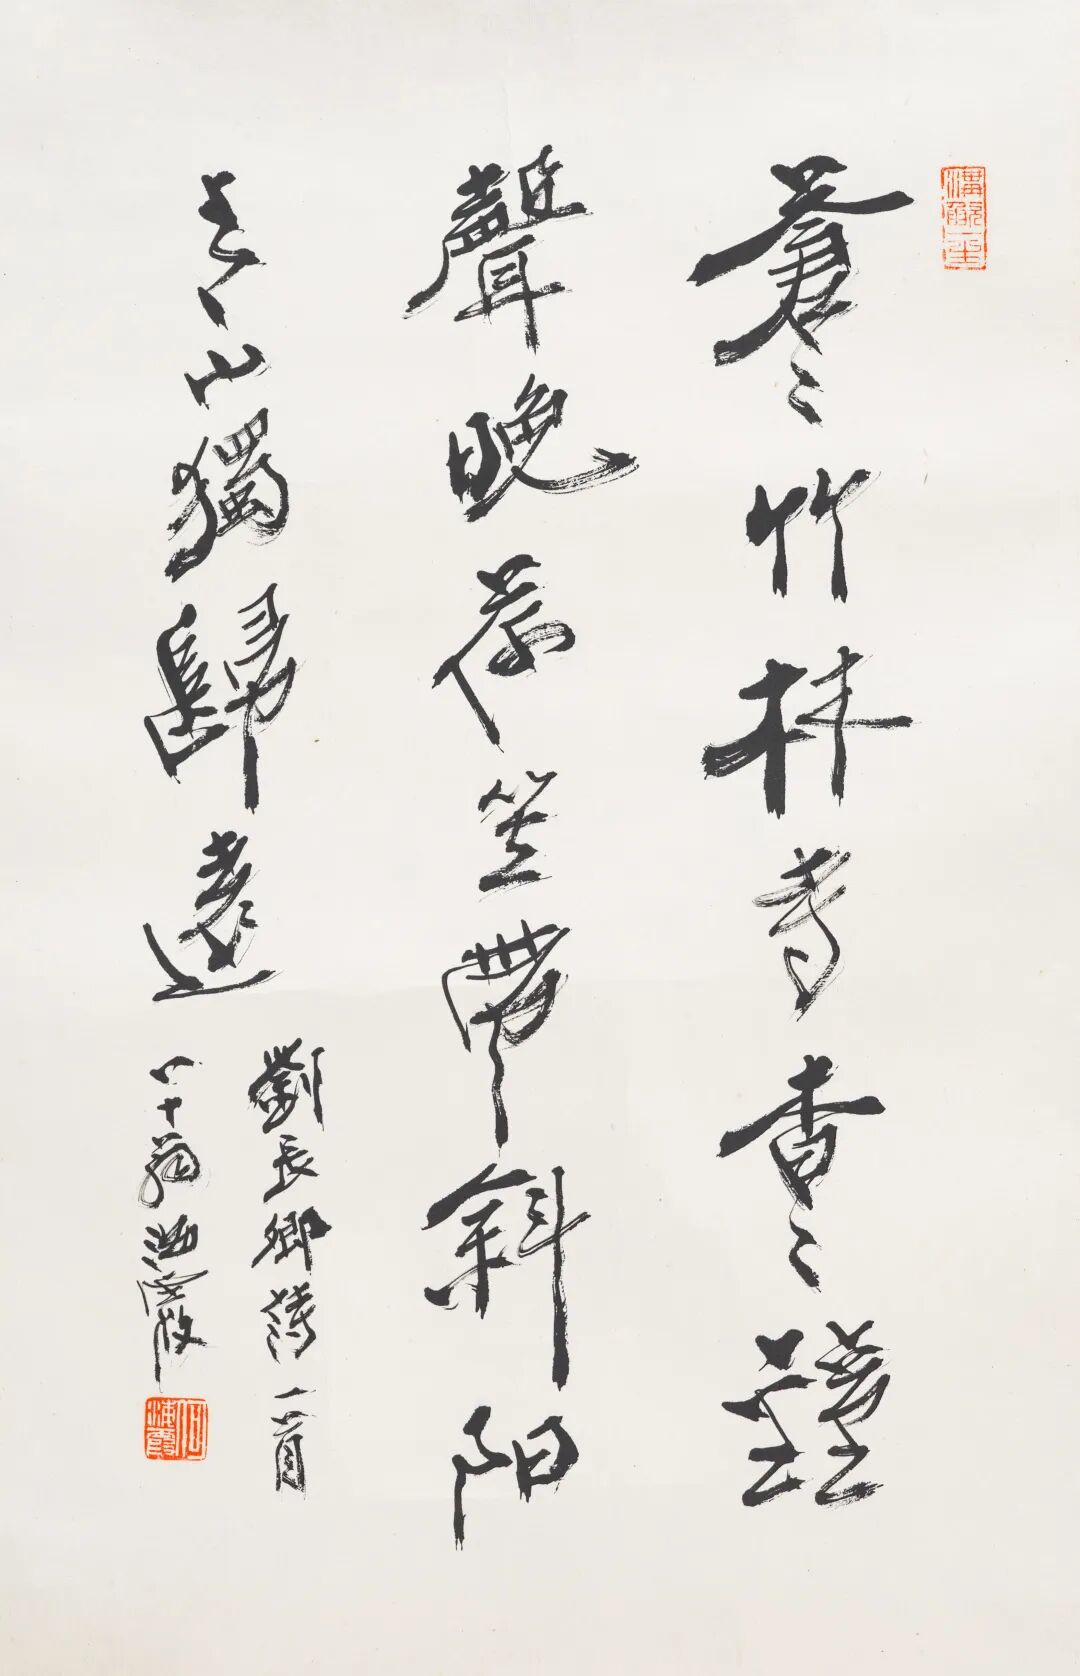 蒼〻竹林寺杳〻鐘
聲晚荷笠帶斜陽
青山獨歸遠
劉長卿詩一首
八十翁海霞
何海霞